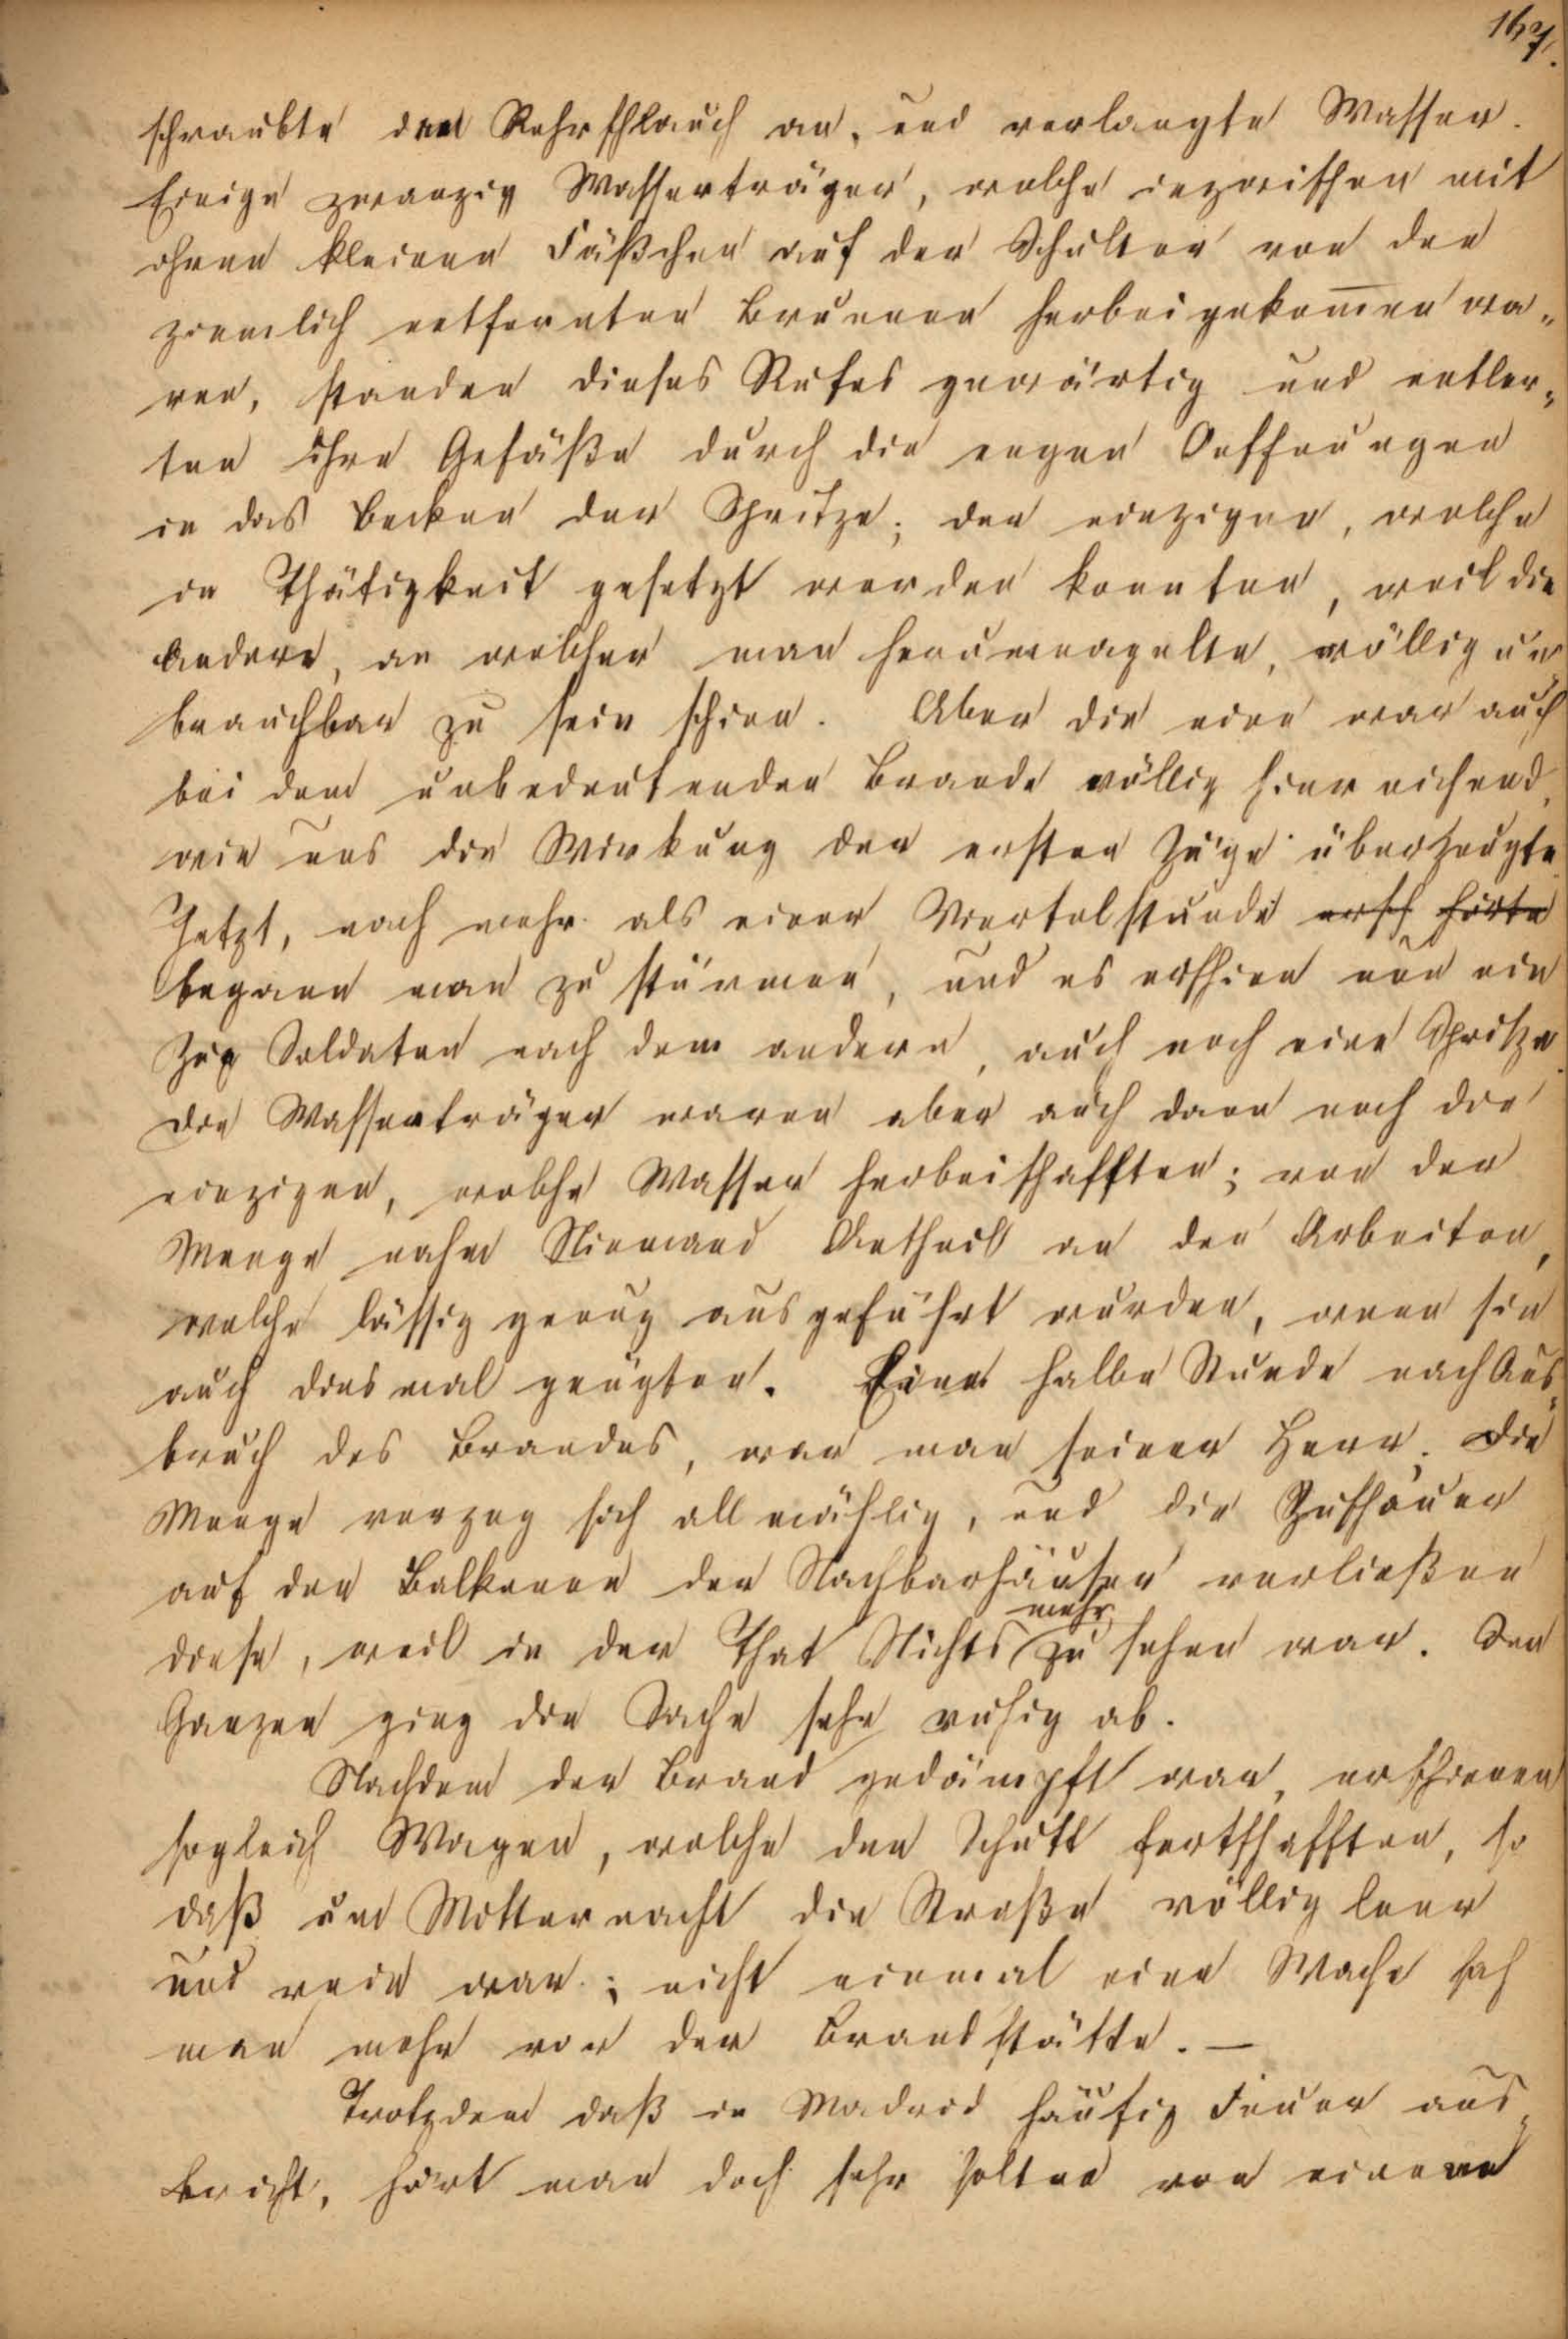 167.
schraubte den Rohrschlauch an, und verlangte Wasser.
Einige zwanzig Wasserträger, welche inzwischen mit
ihren kleinen Fäßchen auf der Schulter von den
ziemlich entfernten Brunnen herbeigekom̄en wa„
ren, standen dieses Rufes gewärtig und entleer„
ten ihre Gefäße durch die engen Oeffnungen
in das Becken der Spritze; der einzigen, welche
in Thätigkeit gesetzt werden konnten, weil die
Andere, an welcher man herumnagelte, völlig un„
brauchbar zu sein schien. Aber die eine war auch
bei dem unbedeutenden Brande völlig hinreichend,
wie uns die Wirkung der ersten Züge überzeugte.
Jetzt, nach mehr als einer Viertelstunde ersch hörte
begann man zu stürmen, und es erschien nun ein
Zug Soldaten nach dem andern, auch noch eine Spritze.
Die Wasserträger waren aber auch dann noch die
einzigen, welche Wasser herbeischafften; von der
Menge nahm Niemand Antheil an den Arbeiten,
welche lässig genug ausgeführt wurden, wenn sie
auch diesmal genügten. Eine halbe Stunde nach Aus„
bruch des Brandes, war man seiner Herr. Die
Menge verzog sich allmählig, und die Zuschauer
auf den Balkonen der Nachbarhäuser verließen
mehr
diese, weil in der That Nichts zu sehen war. Im
Ganzen ging die Sache sehr ruhig ab.
Nachdem der Brand gedämpft war, erschienen
sogleich Wagen, welche den Schutt fortschafften, so
daß um Mitternacht die Straße völlig leer
und rein war; nicht einmal eine Wache sah
man mehr vor der Brandstätte. —
Trotzdem daß in Madrid häufig Feuer aus„
bricht, hört man doch sehr selten von einem